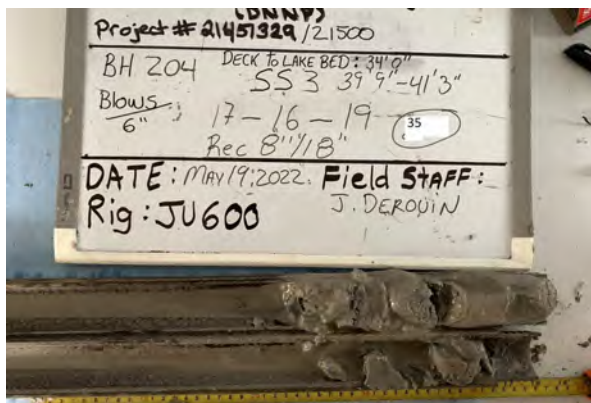 (DNNP)
Project # 21451329/21500
BH 204 DECK TO LAKE BED: 34'0"
SS3 39'9"-41'3"
Blows 6" : 17 - 16 - 19 35
Rec 8"/18"
DATE: MAY 19, 2022. Field STAFF:
Rig: JU600 J. DEROUIN